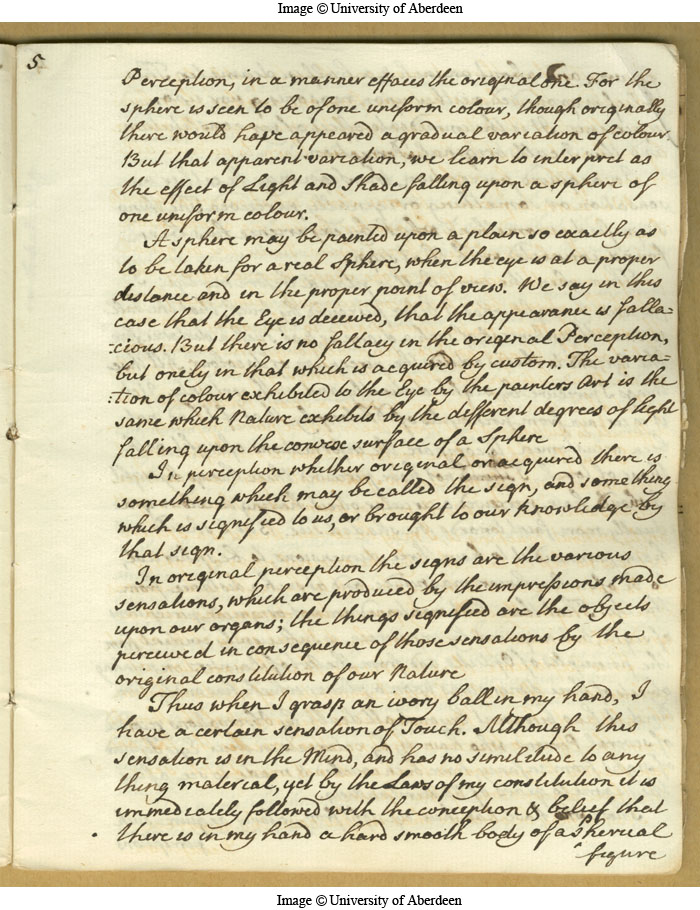 Image © University of Aberdeen
5
Perception, in a manner effaces the original one. For the
sphere is seen to be of one uniform colour, though originally
there would have appeared a gradual variation of colour.
But that apparent variation, we learn to interpret as
the effect of Light and Shade falling upon a sphere of
one uniform colour.
A sphere may be painted upon a plain so exactly as
to be taken for a real Sphere, when the eye is at a proper
distance and in the proper point of view. We say in this
case that the Eye is deceived, that the appearance is falla-
:cious. But there is no fallacy in the original Perception,
but onely in that which is acquired by custom. The varia-
:tion of colour exhibited to the Eye by the painters Art is the
same which Nature exhibits by the different degrees of light
falling upon the convex surface of a Sphere
In perception whether original or acquired there is
something which may be called the sign, and something
which is signified to us, or brought to our knowledge by
that sign.
In original perception the signs are the various
sensations, which are produced by the impressions made
upon our organs; the things signified are the objects
perceived in consequence of those sensations by the
original constitution of our Nature
Thus when I grasp an ivory ball in my hand, I
have a certain sensation of Touch. Although this
sensation is in the Mind, and has no similitude to any
thing material, yet by the Laws of my constitution it is
immediately followed with the conception & belief that
there is in my hand a hard smooth body of a spherical
figure
Image © University of Aberdeen